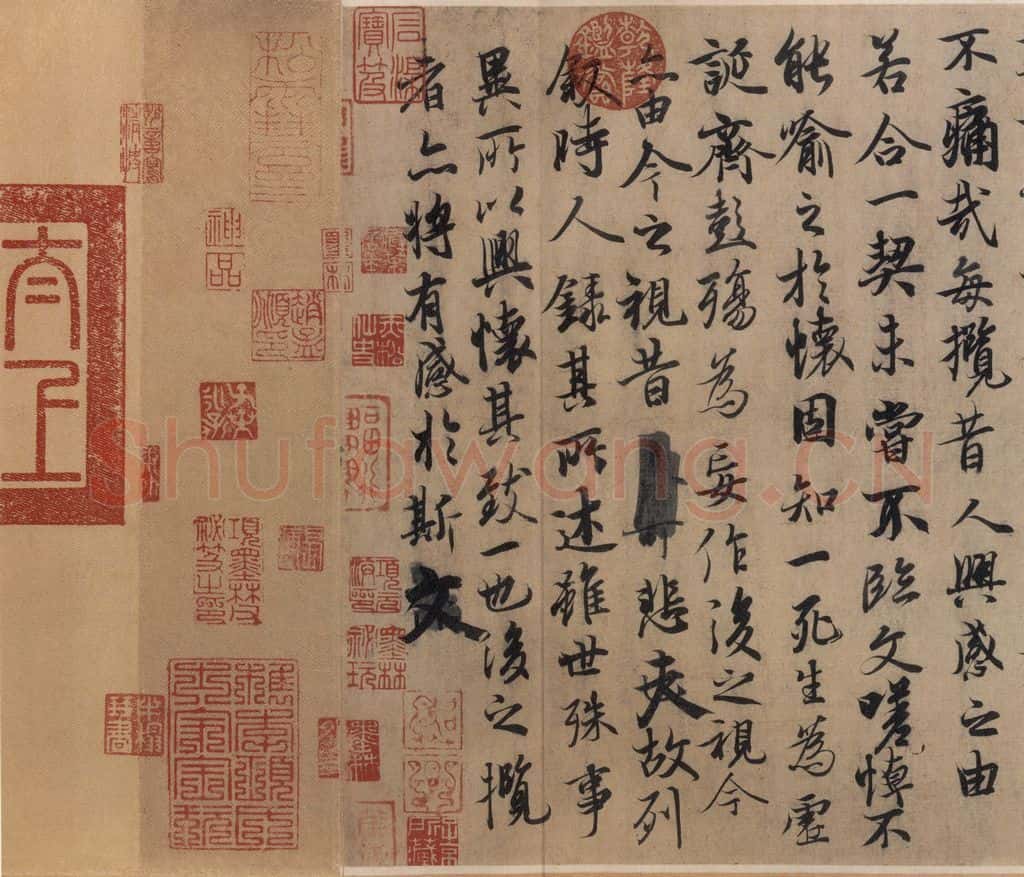 不痛哉每攬昔人興感之由
若合一契未嘗不臨文嗟悼不
能喻之於懷固知一死生為虛
誕齊彭殤為妄作後之視今
亦由今之視昔悲夫故列
敘時人錄其所述雖世殊事
異所以興懷其致一也後之攬
者亦將有感於斯文
神品
項墨林父秘笈之印
墨林秘玩
太上
Shufawang.CN